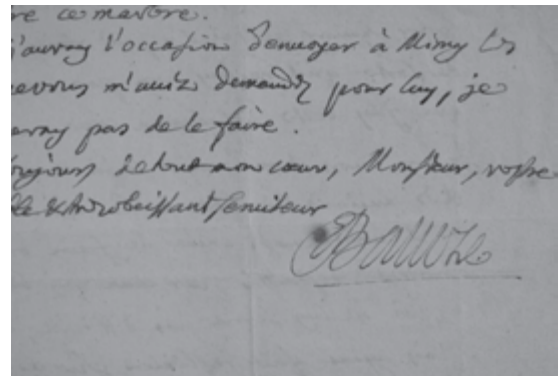 ce marbre.
j'auray l'occasion d'envoyer à Mimy les
m'aviez demandez pour luy, je
pas de le faire.
toujours de tout mon cœur, Monsieur, vostre
& tres obeissant serviteur